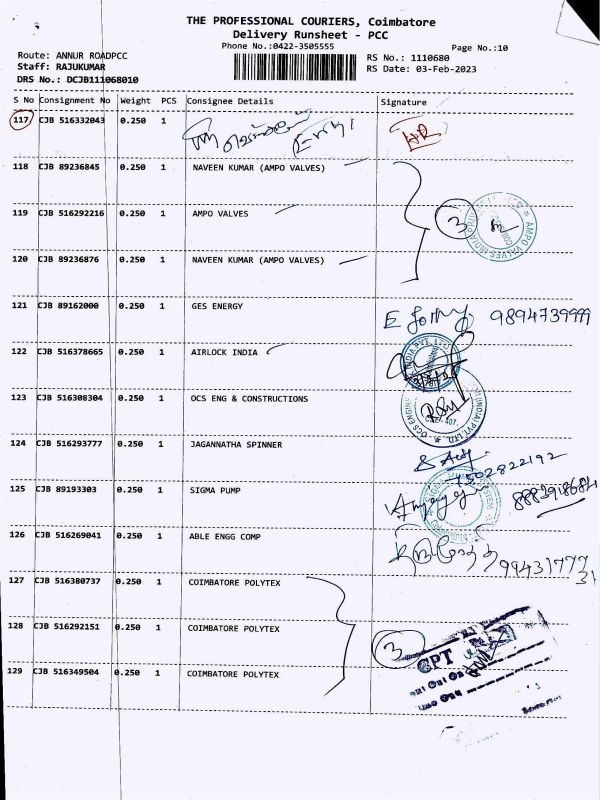 THE PROFESSIONAL COURIERS, Coimbatore
Delivery Runsheet - PCC
Phone No.:0422-3505555
Page No.:10
Route: ANNUR ROADPCC
RS No.: 1110680
Staff: RAJUKUMAR
RS Date: 03-Feb-2023
DRS No.: DCJB111068010
S No Consignment No Weight PCS Consignee Details Signature
117 CJB 516332043 0.250 1
118 CJB 89236845 0.250 1 NAVEEN KUMAR (AMPO VALVES)
119 CJB 516292216 0.250 1 AMPO VALVES
3
120 CJB 89236876 0.250 1 NAVEEN KUMAR (AMPO VALVES)
121 CJB 89162000 0.250 1 GES ENERGY
9894739999
122 CJB 516378665 0.250 1 AIRLOCK INDIA
123 CJB 516308304 0.250 1 OCS ENG & CONSTRUCTIONS
124 CJB 516293777 0.250 1 JAGANNATHA SPINNER
125 CJB 89193303 0.250 1 SIGMA PUMP
126 CJB 516269041 0.250 1 ABLE ENGG COMP
127 CJB 516380737 0.250 1 COIMBATORE POLYTEX
128 CJB 516292151 0.250 1 COIMBATORE POLYTEX
3
CPT
129 CJB 516349504 0.250 1 COIMBATORE POLYTEX